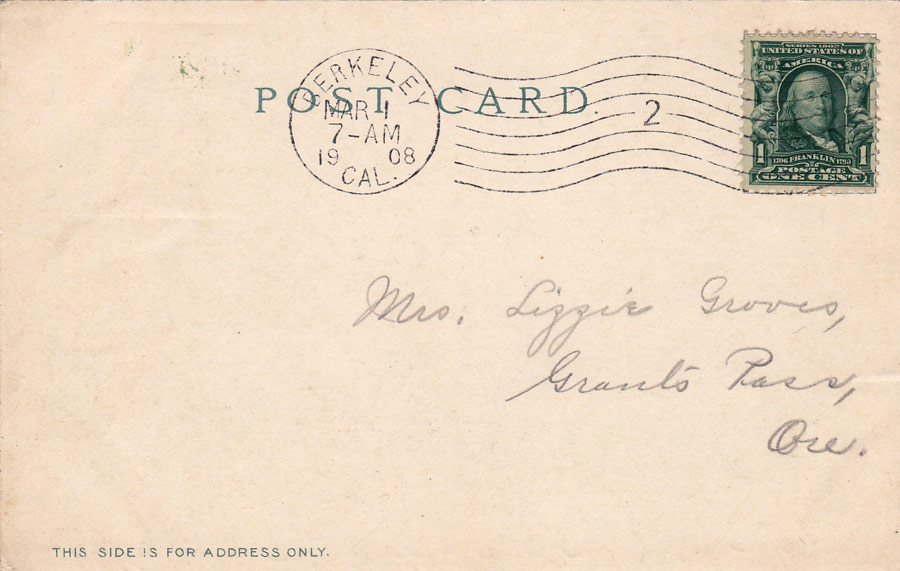 POST CARD.
BERKELEY
MAR 1
7-AM
19 08
CAL.
2
SERIES 1902
UNITED STATES OF
AMERICA
1 1
1706 FRANKLIN 1790
POSTAGE
ONE CENT
Mrs. Lizzie Groves,
Grants Pass,
Ore.
THIS SIDE IS FOR ADDRESS ONLY.